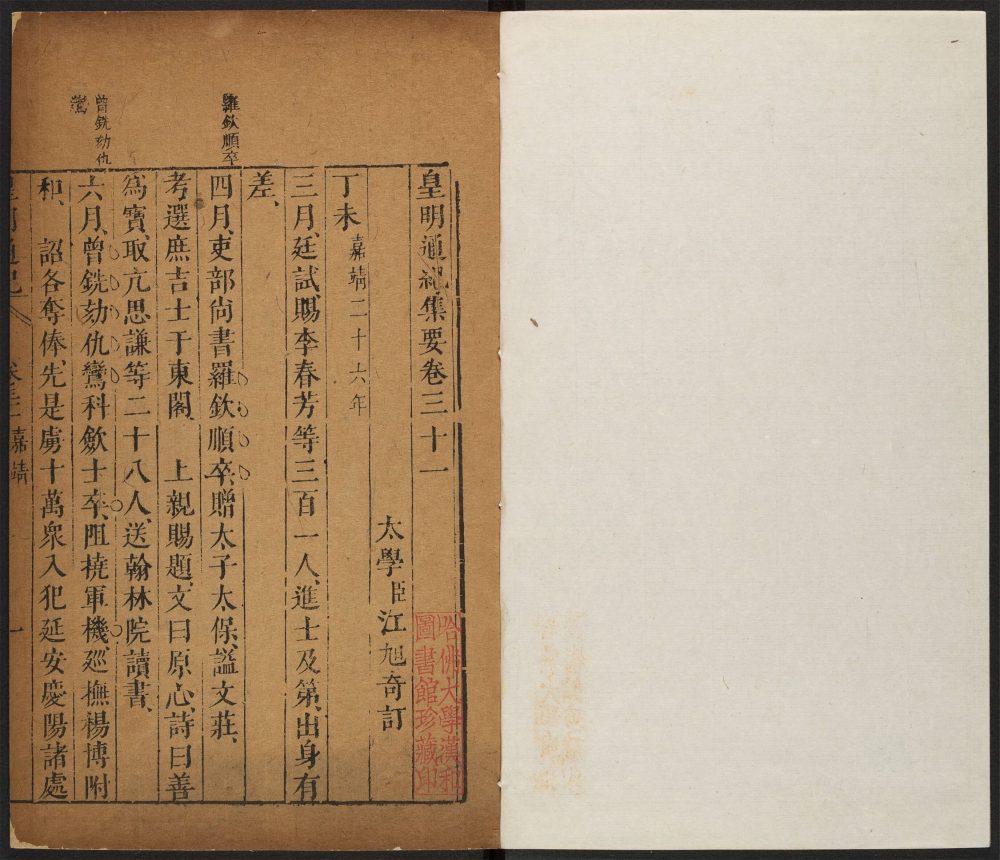 皇明通紀集要卷三十一
太學臣江旭奇訂
丁未嘉靖二十六年
三月、廷試、賜李春芳等三百一人、進士及第、出身有
差、
羅欽順卒
四月、吏部尚書羅欽順卒、贈太子太保、謚文莊、
考選庶吉士于東閣、上親賜題、文曰原心、詩曰善
為寶、取亢思謙等二十八人、送翰林院讀書、
曾銑劾仇
鸞
六月、曾銑劾仇鸞科歛士卒、阻撓軍機、廵撫楊博附
和、詔各奪俸、先是虜十萬衆入犯延安慶陽諸處
嘉靖
一
哈佛大學漢和
圖書館珍藏印